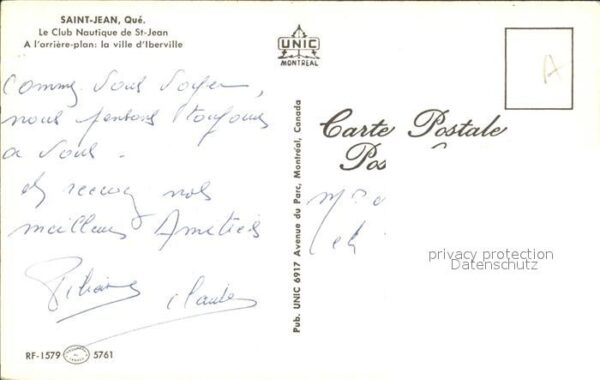 SAINT-JEAN, Qué.
Le Club Nautique de St-Jean
A l'arrière-plan: la ville d'Iberville
Comme vous voyez,
nous pensons toujours
a vous.
et recevez nos
meilleures Amitiés
Claude
RF-1579 5761
UNIC
MONTREAL
Pub. UNIC 6917 Avenue du Parc, Montréal, Canada
A
Carte Postale
Pos
privacy protection
Datenschutz